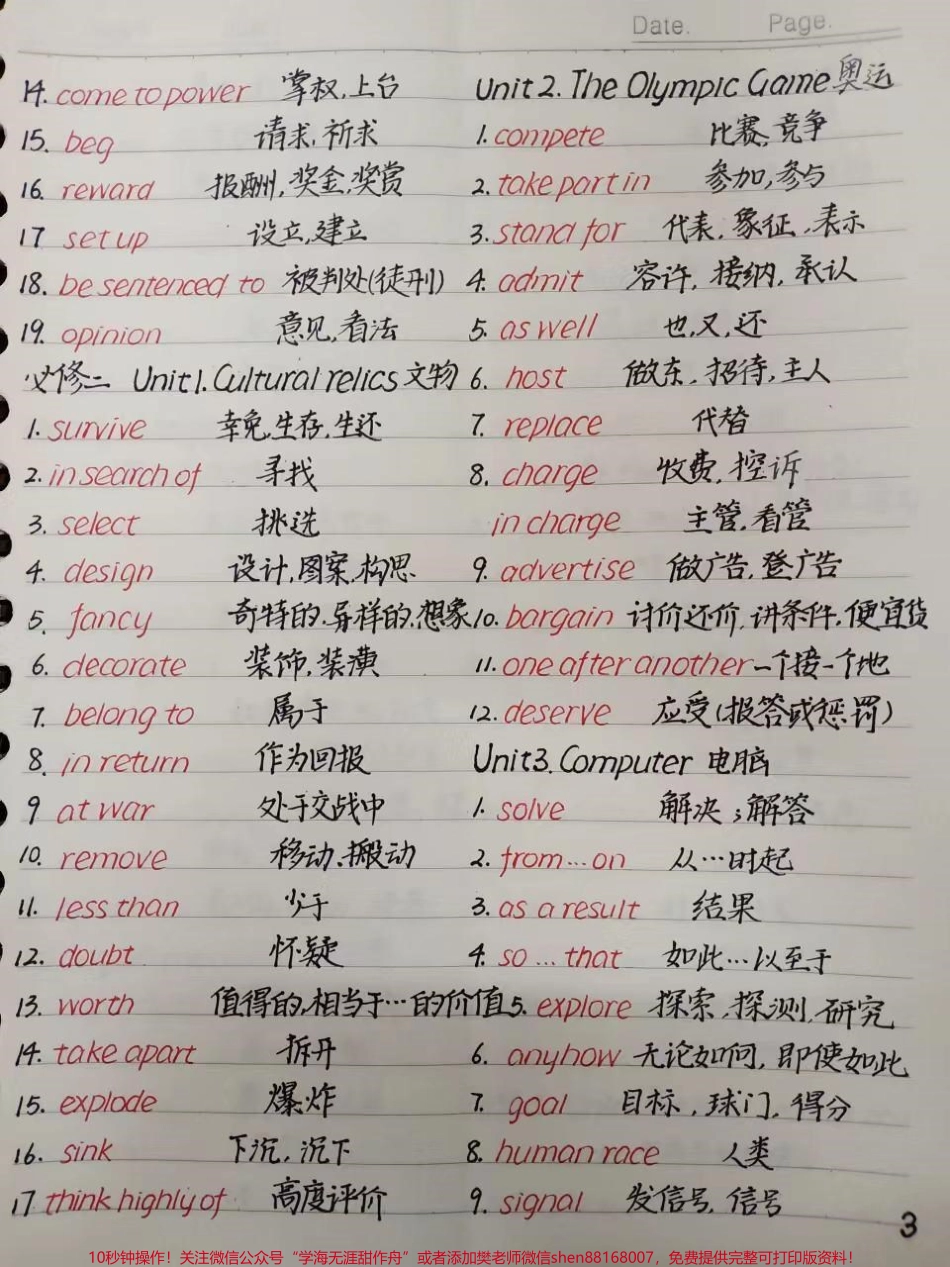 Date. Page.
14. come to power 掌权,上台
15. beg 请求,祈求
16. reward 报酬,奖金,奖赏
17 set up 设立,建立
18. be sentenced to 被判处(徒刑)
19. opinion 意见,看法
必修二 Unit1. Cultural relics 文物
1. survive 幸免,生存,生还
2. in search of 寻找
3. select 挑选
4. design 设计,图案,构思
5. fancy 奇特的,异样的,想象
6. decorate 装饰,装潢
7. belong to 属于
8. in return 作为回报
9 at war 处于交战中
10. remove 移动,搬动
11. less than 少于
12. doubt 怀疑
13. worth 值得的,相当于…的价值
14. take apart 拆开
15. explode 爆炸
16. sink 下沉,沉下
17 think highly of 高度评价
Unit2. The Olympic Game 奥运
1. compete 比赛,竞争
2. take part in 参加,参与
3. stand for 代表,象征,表示
4. admit 容许,接纳,承认
5. as well 也,又,还
6. host 做东,招待,主人
7. replace 代替
8. charge 收费,控诉
in charge 主管,看管
9. advertise 做广告,登广告
10. bargain 讨价还价,讲条件,便宜货
11. one after another 一个接一个地
12. deserve 应受(报答或惩罚)
Unit3. Computer 电脑
1. solve 解决;解答
2. from…on 从…时起
3. as a result 结果
4. so…that 如此…以至于
5. explore 探索,探测,研究
6. anyhow 无论如何,即使如此
7. goal 目标,球门,得分
8. human race 人类
9. signal 发信号,信号
3
10秒钟操作！关注微信公众号“学海无涯甜作舟”或者添加樊老师微信shen88168007，免费提供完整可打印版资料！